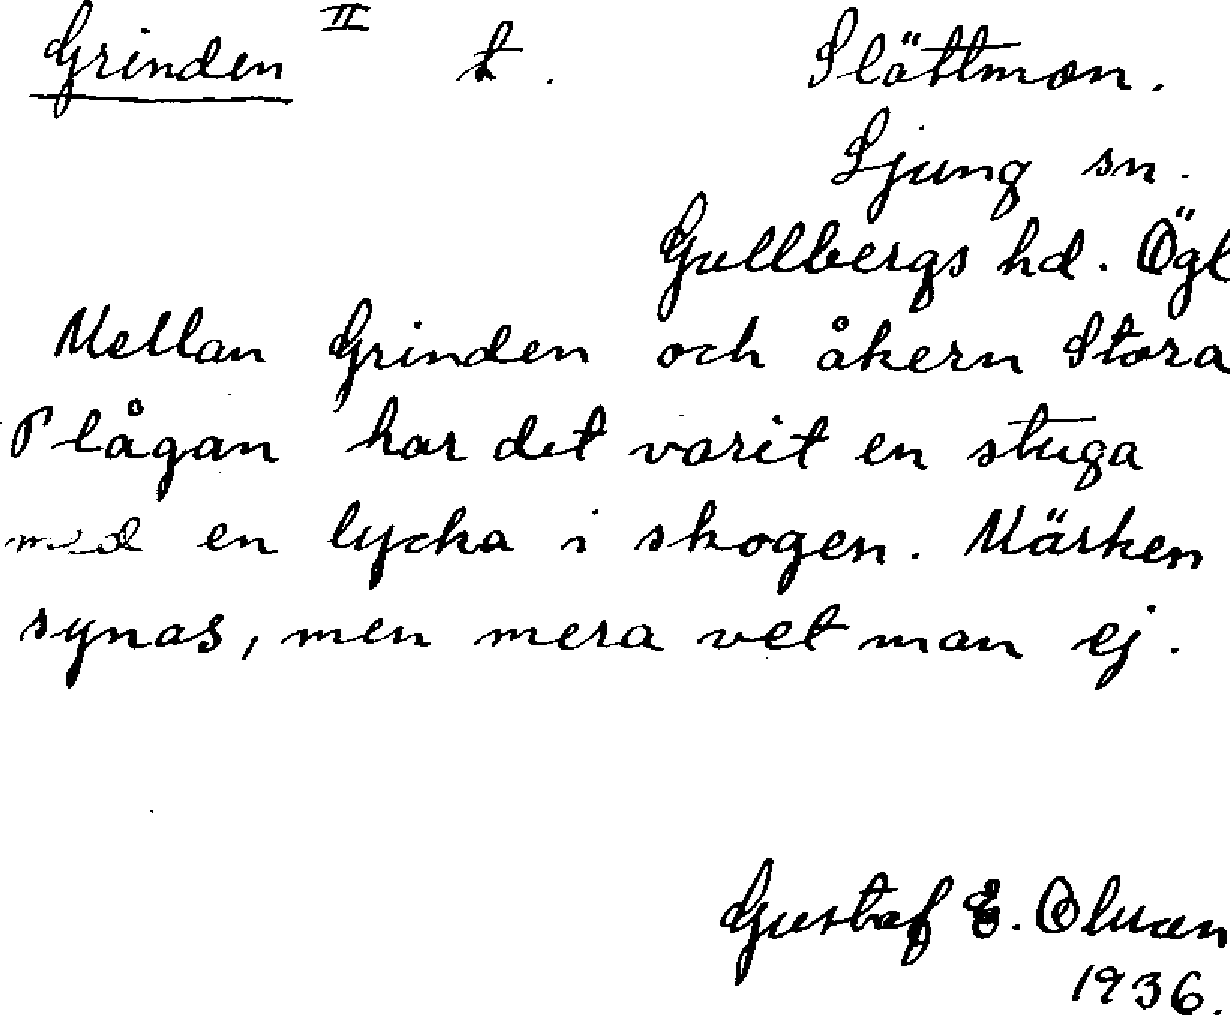 Grinden II t. Slättmon.
Ljung sn.
Gullbergs hd. Ögl
Mellan Grinden och åkern Stora
Plågan har det varit en stuga
med en lycka i skogen. Märken
synas, men mera vet man ej.
Gustaf E. Olsson
1936.